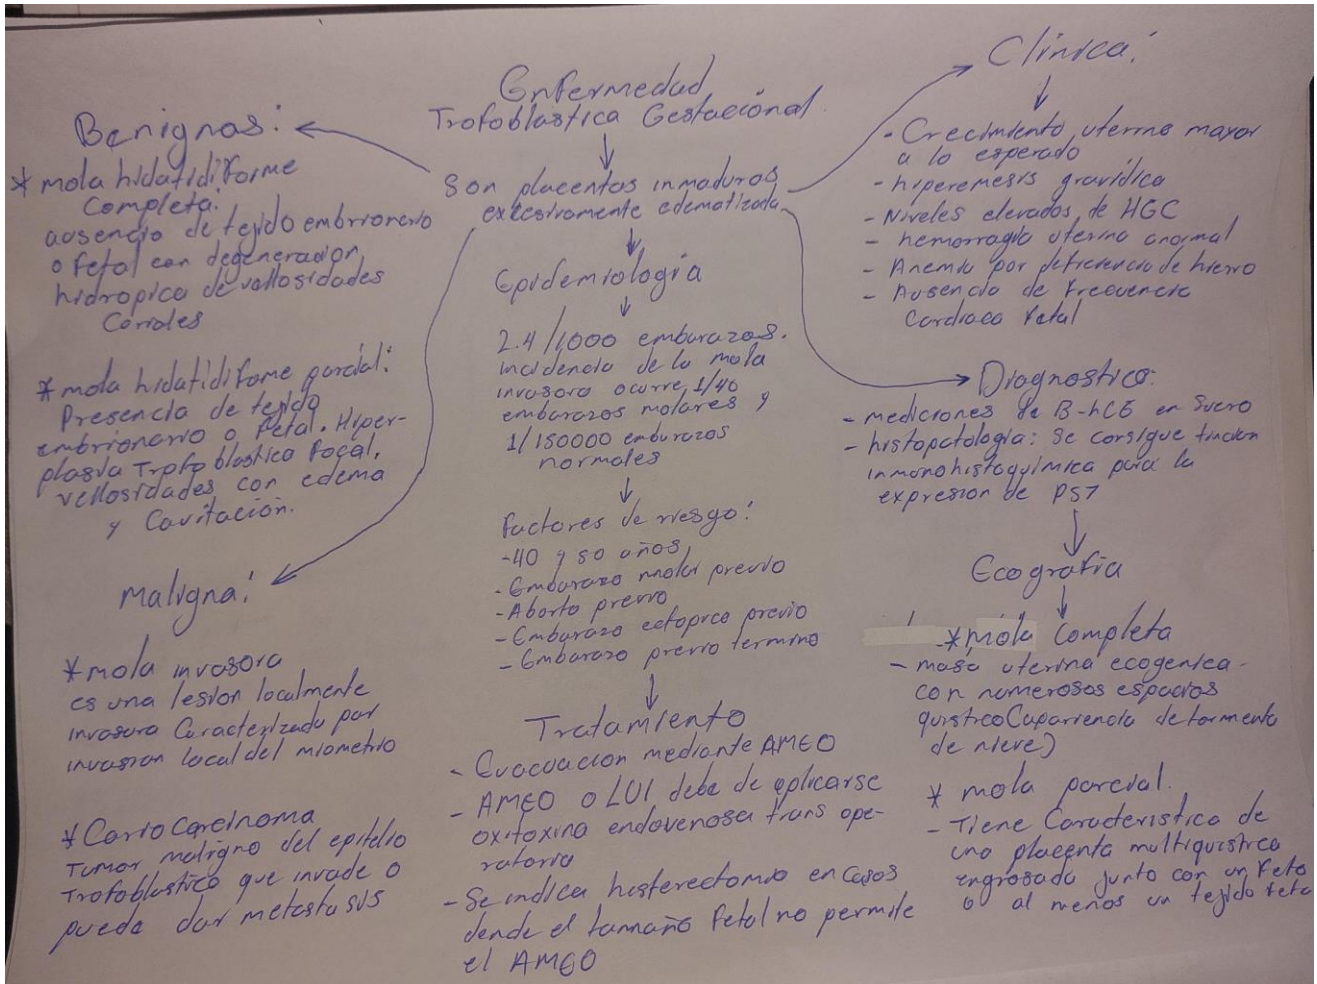 Enfermedad
Trofoblástica Gestacional
Son placentas inmaduras
excesivamente edematizada
Benignas:
* mola hidatidiforme
Completa:
ausencia de tejido embrionario
o fetal con degeneracion
hidropica de vellosidades
Coriales
* mola hidatidiforme parcial:
Presencia de tejido
embrionario o fetal. Hiper-
plasia Trofoblastica focal,
vellosidades con edema
y Cavitación.
Maligna:
* mola invasora
es una lesion localmente
invasora Caracterizada por
invasion local del miometrio
* Coriocarcinoma
Tumor maligno del epitelio
Trofoblastico que invade o
puede dar metastasis
Epidemiología
2.4/1000 embarazos.
incidencia de la mola
invasora ocurre 1/40
embarazos molares y
1/150000 embarazos
normales
factores de riesgo:
-40 y 50 años
-Embarazo molar previo
-Aborto previo
-Embarazo ectopico previo
- Embarazo previo termino
Tratamiento
- Evacuacion mediante AMEO
- AMEO o LUI debe de aplicarse
oxitoxina endovenosa trans ope-
ratoria
- Se indica histerectomia en casos
dende el tamaño fetal no permite
el AMEO
Clínica:
- Crecimiento uterino mayor
a lo esperado
- hiperemesis gravídica
- Niveles elevados de HGC
- hemorragia uterina anormal
- Anemia por deficiencia de hierro
- Ausencia de frecuencia
Cardiaca fetal
Diagnostico:
- mediciones de B-hCG en Suero
- histopatología: Se consigue tincion
inmunohistoquímica para la
expresion de P57
Ecografia
* mola Completa
- masa uterina ecogenica
con numerosos espacios
quistico(apariencia de tormenta
de nieve)
* mola parcial.
- Tiene Caracteristica de
una placenta multiquistica
engrosada junto con un feto
o al menos un tejido feta